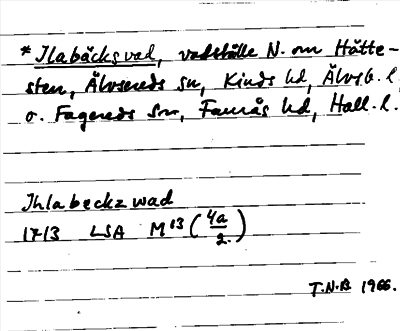 * Ilabäcks vad, vadställe N. om Hätte-
sten, Älvsereds sn, Kinds hd, Älvsb. l.
o. Fagereds sn, Faurås hd, Hall. l.
Ihlabeckz wad
1713 LSA M13 (4a/2)
T.N.B. 1966.